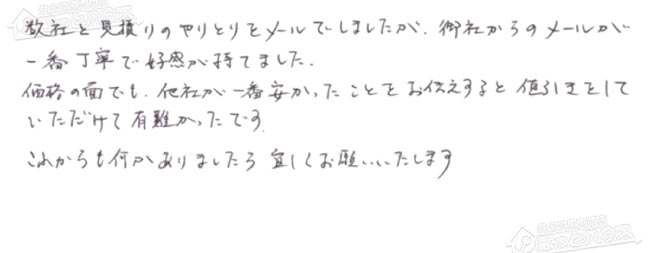 数社と見積りのやりとりをメールでしましたが、御社からのメールが
一番丁寧で好感が持てました。
価格の面でも、他社が一番安かったことをお伝えすると値引きをして
いただけて有難かったです。
これからも何かありましたら宜しくお願いいたします